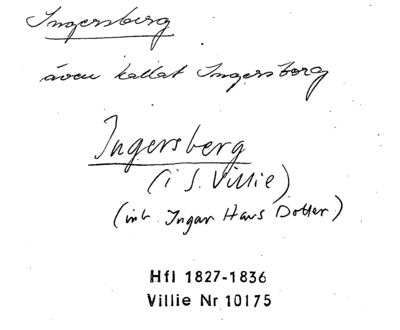 Ingersberg
även kallat Ingersberg
Ingersberg
(i S. Villie)
(inh Ingar Hans Dotter)
Hfl 1827-1836
Villie Nr 10175